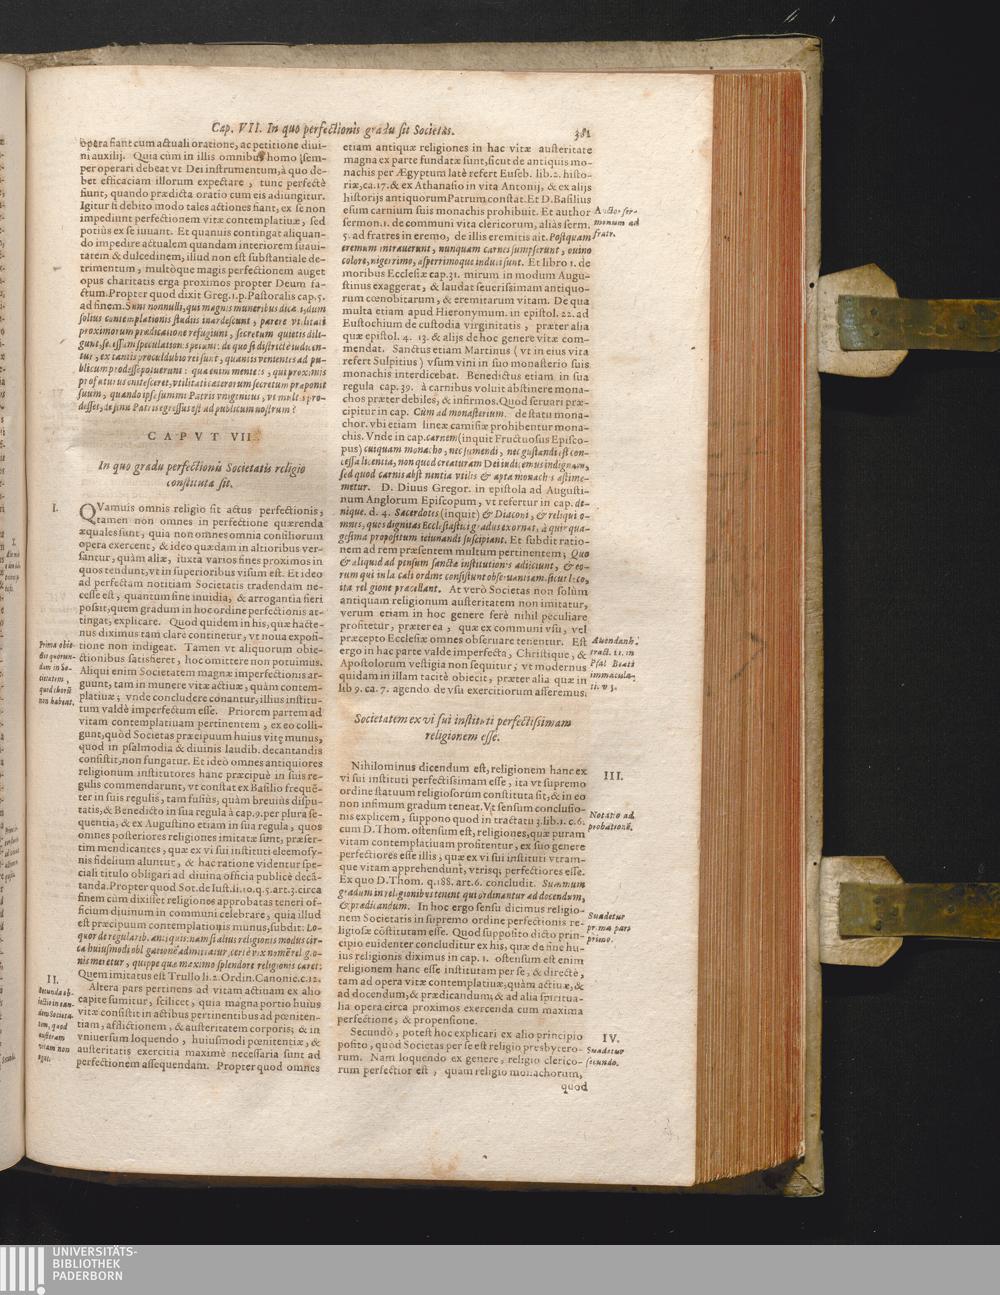 Cap. VII. In quo perfectionis gradu sit Societas.
381
opera fiant cum actuali oratione, ac petitione diui-
ni auxilij. Quia cùm in illis omnibus homo sem-
per operari debeat vt Dei instrumentum, à quo de-
bet efficaciam illorum expectare, tunc perfectè
fiunt, quando prædicta oratio cum eis adiungitur.
Igitur si debito modo tales actiones fiant, ex se non
impediunt perfectionem vitæ contemplatiuæ, sed
potiùs ex se iuuant. Et quanuis contingat aliquan-
do impedire actualem quandam interiorem suaui-
tatem & dulcedinem, illud non est substantiale de-
trimentum, multòque magis perfectionem auget
opus charitatis erga proximos propter Deum fa-
ctum. Propter quod dixit Greg. 1. p. Pastoralis cap. 5.
ad finem. Sunt nonnulli, qui magnis muneribus
solius contemplationis studiis inardescunt, parere vtilitati
proximorum prædicatione refugiunt, secretum quietis dili-
gunt, secessum speculationis petunt: de quo si districtè iudicen-
tur, ex tantis proculdubio rei sunt, quantis venientes ad pu-
blicum prodesse potuerunt: qua enim mente is, qui proximis
profuturus enitesceret, vtilitati cæterorum secretum præponit
suum, quando ipse summi Patris vnigenitus, vt multis pro-
desset, de sinu Patris egressus est ad publicum nostrum?
CAPVT VII.
In quo gradu perfectionis Societatis religio
constituta sit.
I.
QVamuis omnis religio sit actus perfectionis,
tamen non omnes in perfectione quærenda
æquales sunt, quia non omnes omnia consiliorum
opera exercent, & ideo quædam in altioribus ver-
santur, quàm aliæ, iuxta varios fines proximos in
quos tendunt, vt in superioribus visum est. Et ideo
ad perfectam notitiam Societatis tradendam ne-
cesse est, quantum sine inuidia, & arrogantia fieri
possit, quem gradum in hoc ordine perfectionis at-
tingat, explicare. Quod quidem in his, quæ hacte-
nus diximus tam clarè continetur, vt noua exposi-
tione non indigeat. Tamen vt aliquorum obie-
ctionibus satisfieret, hoc omittere non potuimus.
Aliqui enim Societatem magnæ imperfectionis ar-
guunt, tam in munere vitæ actiuæ, quàm contem-
platiuæ; vnde concludere conantur, illius institu-
tum valdè imperfectum esse. Priorem partem ad
vitam contemplatiuam pertinentem, ex eo colli-
gunt, quòd Societas præcipuum huius vitę munus,
quod in psalmodia & diuinis laudib. decantandis
consistit, non fungatur. Et ideò omnes antiquiores
religionum institutores hanc præcipuè in suis re-
gulis commendarunt, vt constat ex Basilio frequẽ-
ter in suis regulis, tam fusius, quàm breuiùs dispu-
tatis, & Benedicto in sua regula à cap. 9. per plura se-
quentia, & ex Augustino etiam in sua regula, quos
omnes posteriores religiones imitatæ sunt, præser-
tim mendicantes, quæ ex vi sui instituti eleemosy-
nis fidelium aluntur, & hac ratione videntur spe-
ciali titulo obligari ad diuina officia publicè decã-
tanda. Propter quod Sot. de Iust. li. 10. q. 5. art. 3. circa
finem cùm dixisset religiones approbatas teneri of-
ficium diuinum in communi celebrare, quia illud
est præcipuum contemplationis munus, subdit: Lo-
quor de regularib. antiquis: nam si alius religionis modus cir-
ca huiusmodi obligationẽ admittatur, certè vix nomẽ religio-
nis meretur, quippe quæ maximo splendore religionis caret:
Quem imitatus est Trullo li. 2. Ordin. Canonic. c. 12.
Altera pars pertinens ad vitam actiuam ex alio
capite sumitur, scilicet, quia magna portio huius
vitæ consistit in actibus pertinentibus ad pœniten-
tiam, afflictionem, & austeritatem corporis; & in
vniuersum loquendo, huiusmodi pœnitentiæ, &
austeritatis exercitia maximè necessaria sunt ad
perfectionem assequendam. Propter quod omnes
Prima obie-
ctio quorun-
dam in So-
cietatem,
quod chorũ
non habeat.
II.
Secunda ob-
iectio in ean-
dem Societa-
tem, quod
austeram
vitam non
agat.
etiam antiquæ religiones in hac vitæ austeritate
magna ex parte fundatæ sunt, sicut de antiquis mo-
nachis per Ægyptum latè refert Euseb. lib. 2. histo-
riæ, ca. 17. & ex Athanasio in vita Antonij, & ex alijs
historijs antiquorum Patrum constat. Et D. Basilius
esum carnium suis monachis prohibuit. Et author
sermon. 1. de communi vita clericorum, aliàs serm.
5. ad fratres in eremo, de illis eremitis ait. Postquam
eremum intrauerunt, nunquam carnes sumpserunt, ouino
colore, nigerrimo, asperrimoque induti sunt. Et libro 1. de
moribus Ecclesiæ cap. 31. mirum in modum Augu-
stinus exaggerat, & laudat seuerissimam antiquo-
rum cœnobitarum, & eremitarum vitam. De qua
multa etiam apud Hieronymum. in epistol. 22. ad
Eustochium de custodia virginitatis, præter alia
quæ epistol. 4. 13. & alijs de hoc genere vitæ com-
mendat. Sanctus etiam Martinus (vt in eius vita
refert Sulpitius) vsum vini in suo monasterio suis
monachis interdicebat. Benedictus etiam in sua
regula cap. 39. à carnibus voluit abstinere mona-
chos præter debiles, & infirmos. Quod seruari præ-
cipitur in cap. Cùm ad monasterium. de statu mona-
chor. vbi etiam lineæ camisiæ prohibentur mona-
chis. Vnde in cap. carnem (inquit Fructuosus Episco-
pus) cuiquam monacho, nec sumendi, nec gustandi est con-
cessa licentia, non quod creaturam Dei iudicemus indignam,
sed quod carnis abstinentia vtilis & apta monachis æstime-
metur. D. Diuus Gregor. in epistola ad Augusti-
num Anglorum Episcopum, vt refertur in cap. de-
nique. d. 4. Sacerdotes (inquit) & Diaconi, & reliqui o-
mnes, quos dignitas Ecclesiastici gradus exornat, à quinqua-
gesima propositum ieiunandi suscipiant. Et subdit ratio-
nem ad rem præsentem multum pertinentem; Quo
& aliquid ad pensum sanctæ institutionis adiiciunt, & eo-
rum qui in laicali ordine consistunt obseruantiam, sicut loco,
ita religione præcellant. At verò Societas non solùm
antiquam religionum austeritatem non imitatur,
verum etiam in hoc genere ferè nihil peculiare
profitetur, præter ea, quæ ex communi vsu, vel
præcepto Ecclesiæ omnes obseruare tenentur. Est
ergo in hac parte valde imperfecta, Christique, &
Apostolorum vestigia non sequitur, vt modernus
quidam in illam tacitè obiecit, præter alia quæ in
lib 9. ca. 7. agendo de vsu exercitiorum asseremus.
Societatem ex vi sui instituti perfectissimam
religionem esse.
Nihilominus dicendum est, religionem hanc ex
vi sui instituti perfectissimam esse, ita vt supremo
ordine statuum religiosorum constituta sit, & in eo
non infimum gradum teneat. Vt sensum conclusio-
nis explicem, suppono quod in tractatu 3. lib. 1. c. 6.
cum D. Thom. ostensum est, religiones, quæ puram
vitam contemplatiuam profitentur, ex suo genere
perfectiores esse illis, quæ ex vi sui instituti vtram-
que vitam apprehendunt, vtrisq; perfectiores esse.
Ex quo D. Thom. q. 188. art. 6. concludit. Summum
gradum in religionibus tenent qui ordinantur ad docendum,
& prædicandum. In hoc ergo sensu dicimus religio-
nem Societatis in supremo ordine perfectionis re-
ligiosæ cõstitutam esse. Quod supposito dicto prin-
cipio euidenter concluditur ex his, quæ de fine hu-
ius religionis diximus in cap. 1. ostensum est enim
religionem hanc esse institutam per se, & directè,
tam ad opera vitæ contemplatiuæ, quàm actiuæ, &
ad docendum, & prædicandum, & ad alia spiritua-
lia opera circa proximos exercenda cum maxima
perfectione, & propensione.
Secundò, potest hoc explicari ex alio principio
posito, quod Societas per se est religio presbytero-
rum. Nam loquendo ex genere, religio clerico-
rum perfectior est, quàm religio monachorum,
quod
Auctor ser-
monum ad
fratr.
Auendanh.
tract. 11. in
Psal Beati
immacula-
ti. v 3.
III.
Notatio ad
probationẽ.
Suadetur
prima pars
primo.
IV.
Suadetur
secundo.
UNIVERSITÄTS-
BIBLIOTHEK
PADERBORN